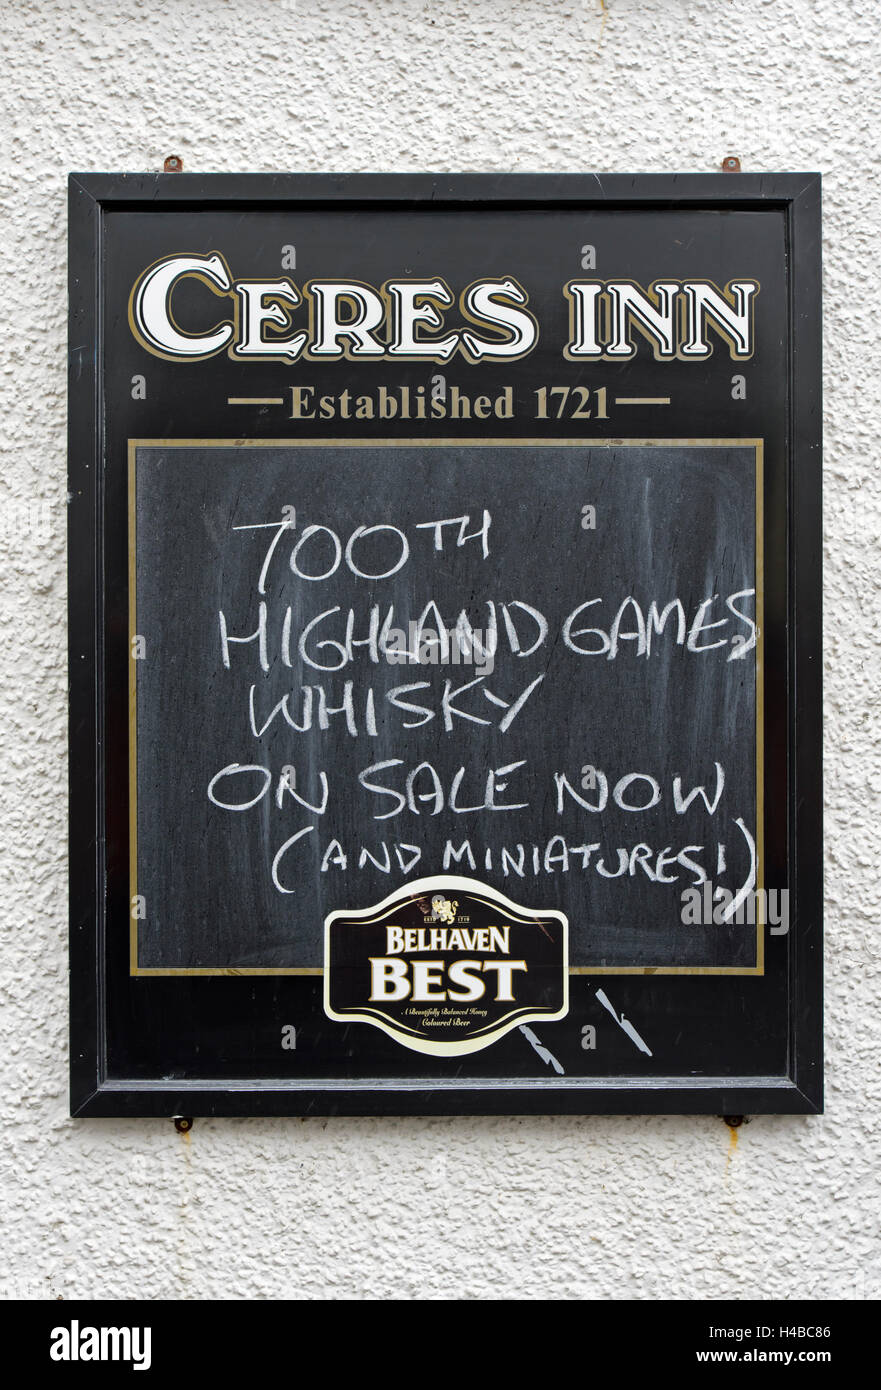 CERES INN
Established 1721
700TH
HIGHLAND GAMES
WHISKY
ON SALE NOW
(AND MINIATURES!)
ESTD 1719
BELHAVEN
BEST
A Beautifully Balanced Honey
Coloured Beer
a
alamy
Image ID: H4BC86
www.alamy.com